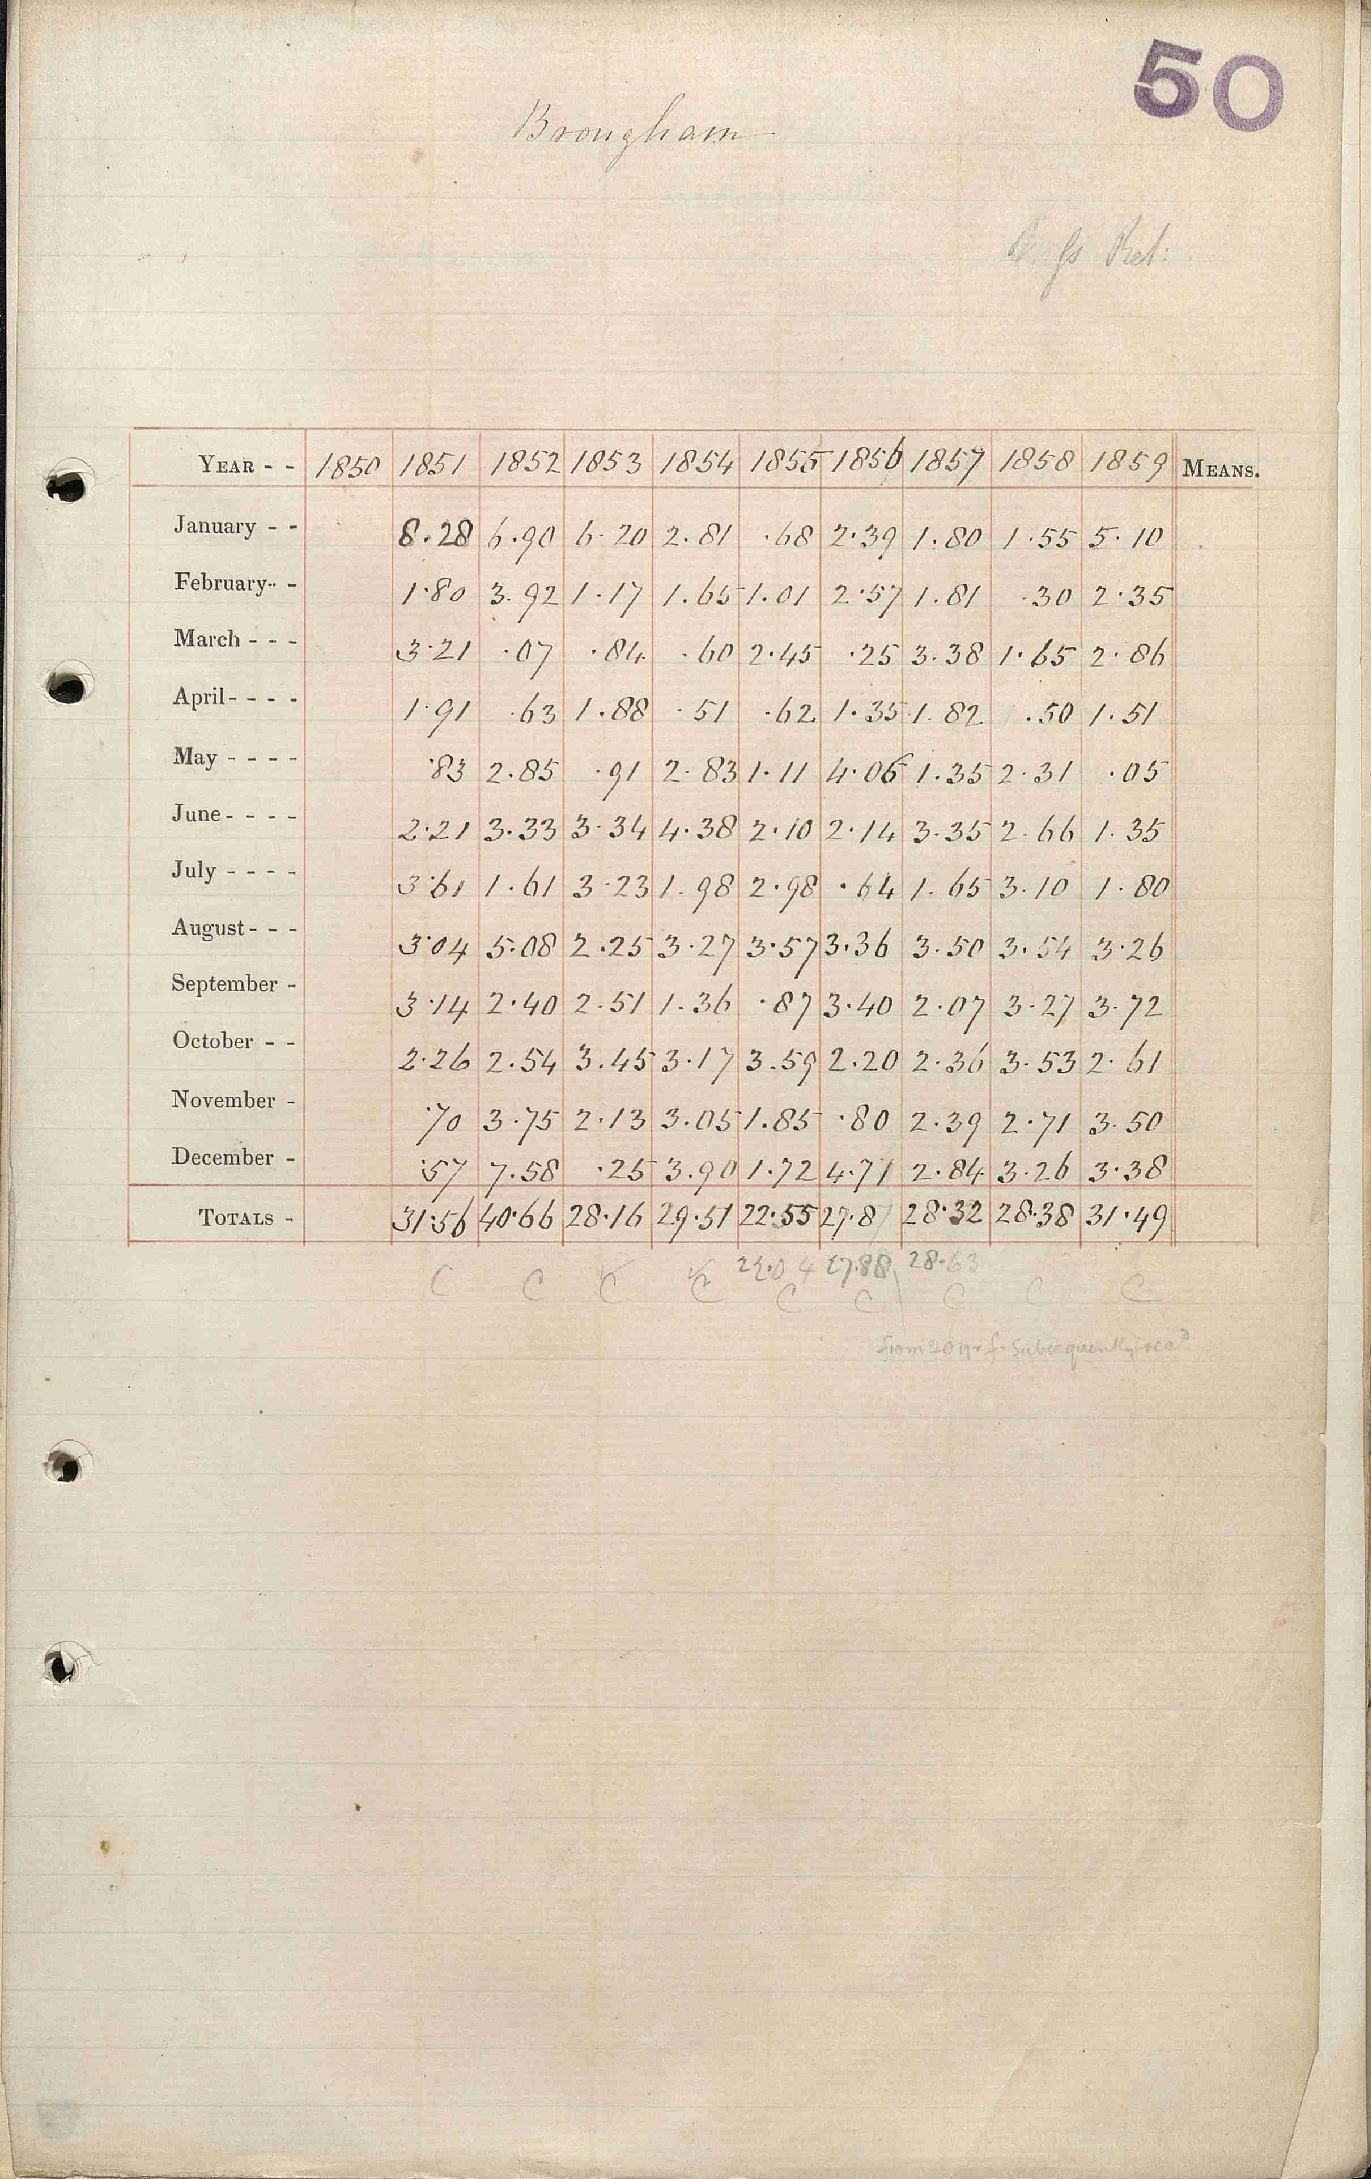 50
Brougham
Ret:
YEAR - - 1850 1851 1852 1853 1854 1855 1856 1857 1858 1859 MEANS.
January - - 8.28 6.90 6.20 2.81 .68 2.39 1.80 1.55 5.10
February - - 1.80 3.92 1.17 1.65 1.01 2.57 1.81 .30 2.35
March - - - 3.21 .07 .84 .60 2.45 .25 3.38 1.65 2.86
April - - - - 1.91 .63 1.88 .51 .62 1.35 1.82 .50 1.51
May - - - - .83 2.85 .91 2.83 1.11 4.06 1.35 2.31 .05
June - - - - 2.21 3.33 3.34 4.38 2.10 2.14 3.35 2.66 1.35
July - - - - 3.61 1.61 3.23 1.98 2.98 .64 1.65 3.10 1.80
August - - - 3.04 5.08 2.25 3.27 3.57 3.36 3.50 3.54 3.26
September - 3.14 2.40 2.51 1.36 .87 3.40 2.07 3.27 3.72
October - - 2.26 2.54 3.45 3.17 3.59 2.20 2.36 3.53 2.61
November - .70 3.75 2.13 3.05 1.85 .80 2.39 2.71 3.50
December - .57 7.58 .25 3.90 1.72 4.71 2.84 3.26 3.38
TOTALS - 31.56 40.66 28.16 29.51 22.55 27.87 28.32 28.38 31.49
27.88 28.63
C C C C C C C C C
from 20 yr f. subsequently recd